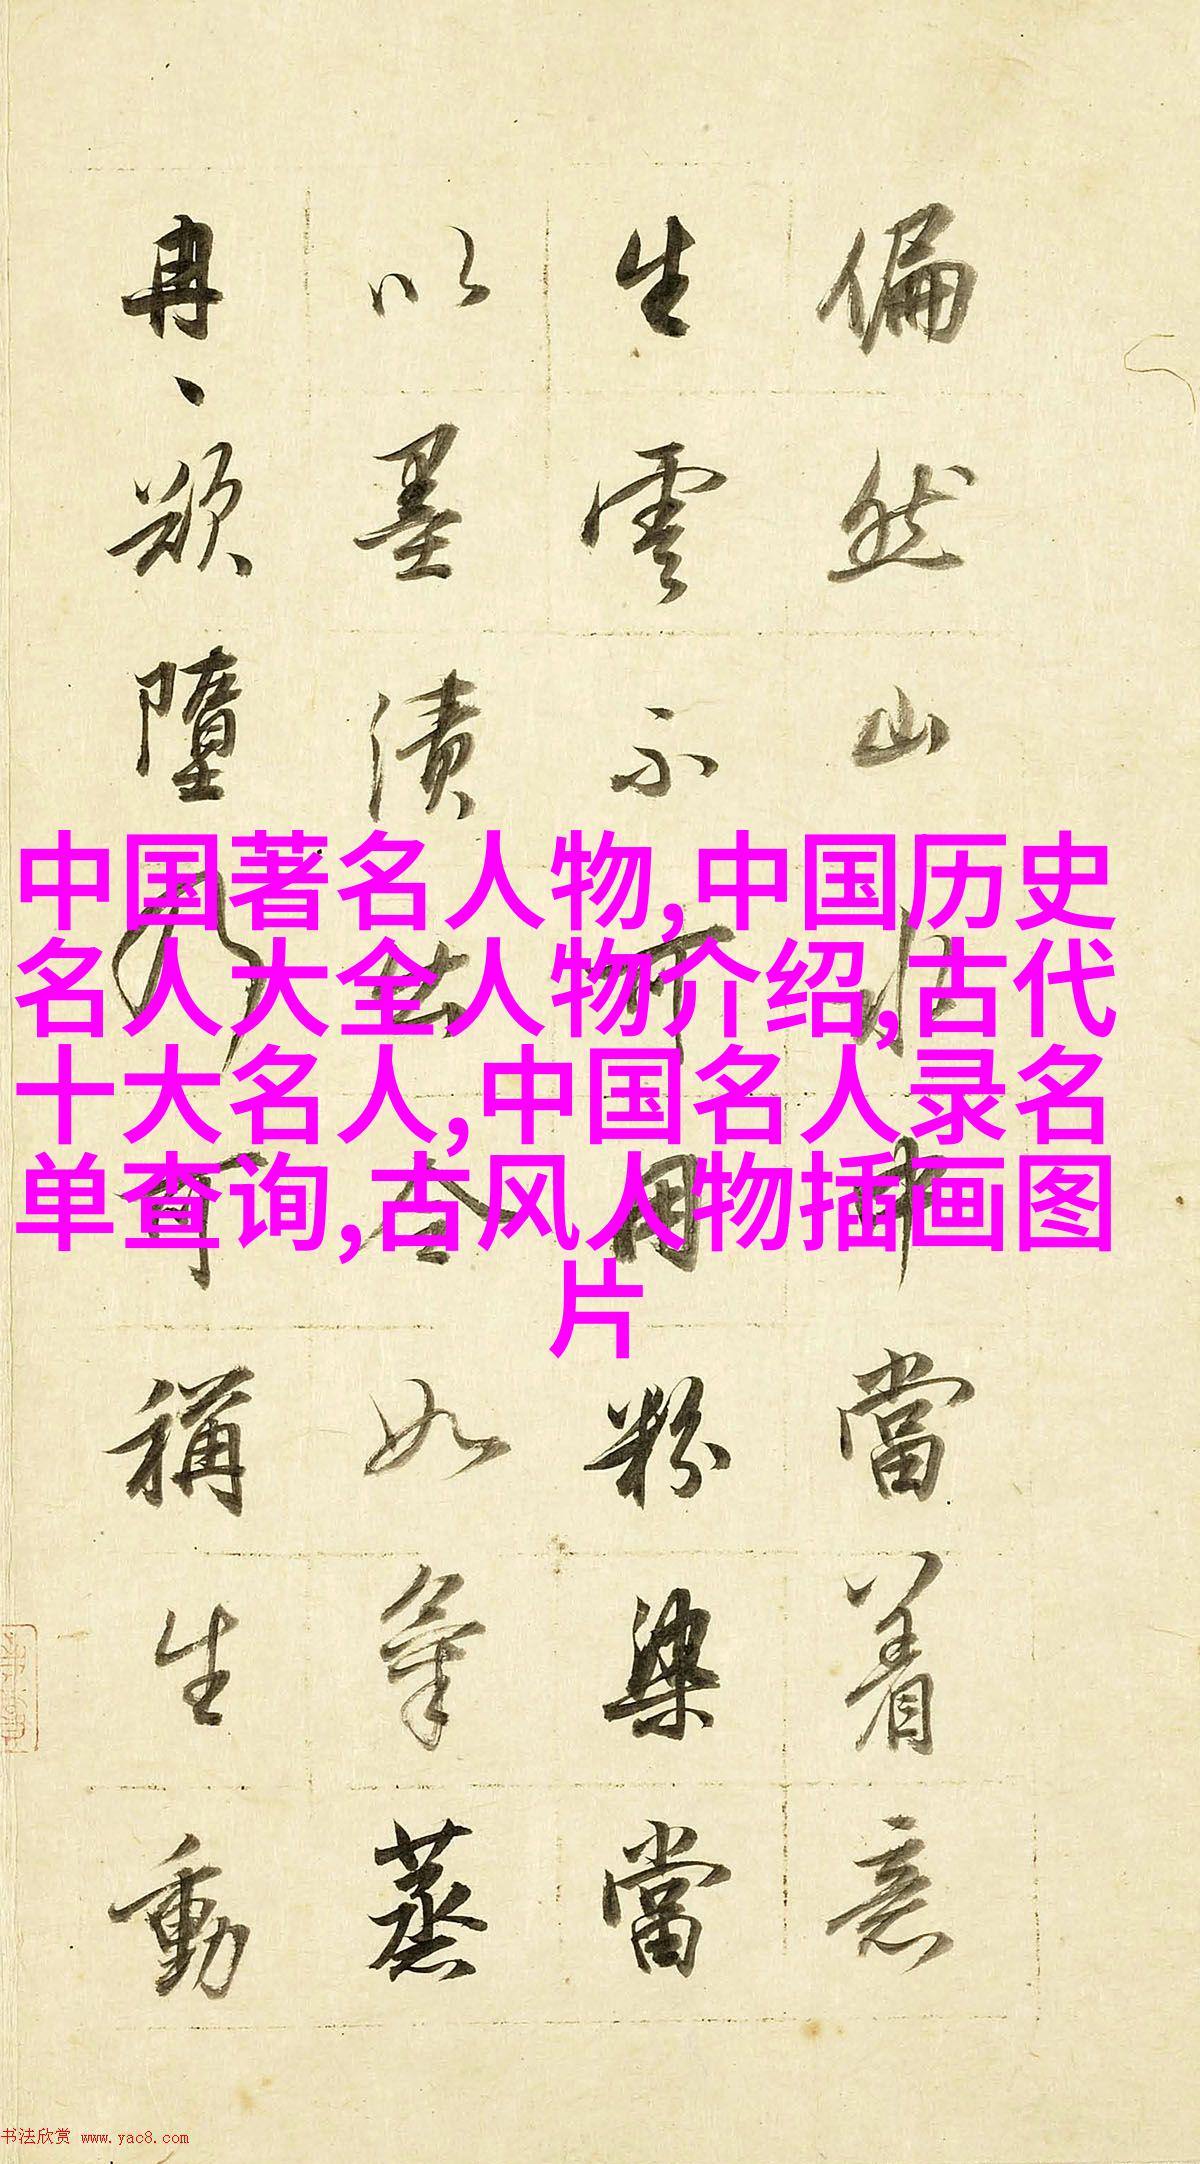 偏然山水中當着意
生雲不可用粉染當
以墨漬出令如氣蒸
冉、欲墮乃可稱生動
中国著名人物,中国历史
名人大全人物介绍,古代
十大名人,中国名人录名
单查询,古风人物插画图
片
书法欣赏 www.yac8.com